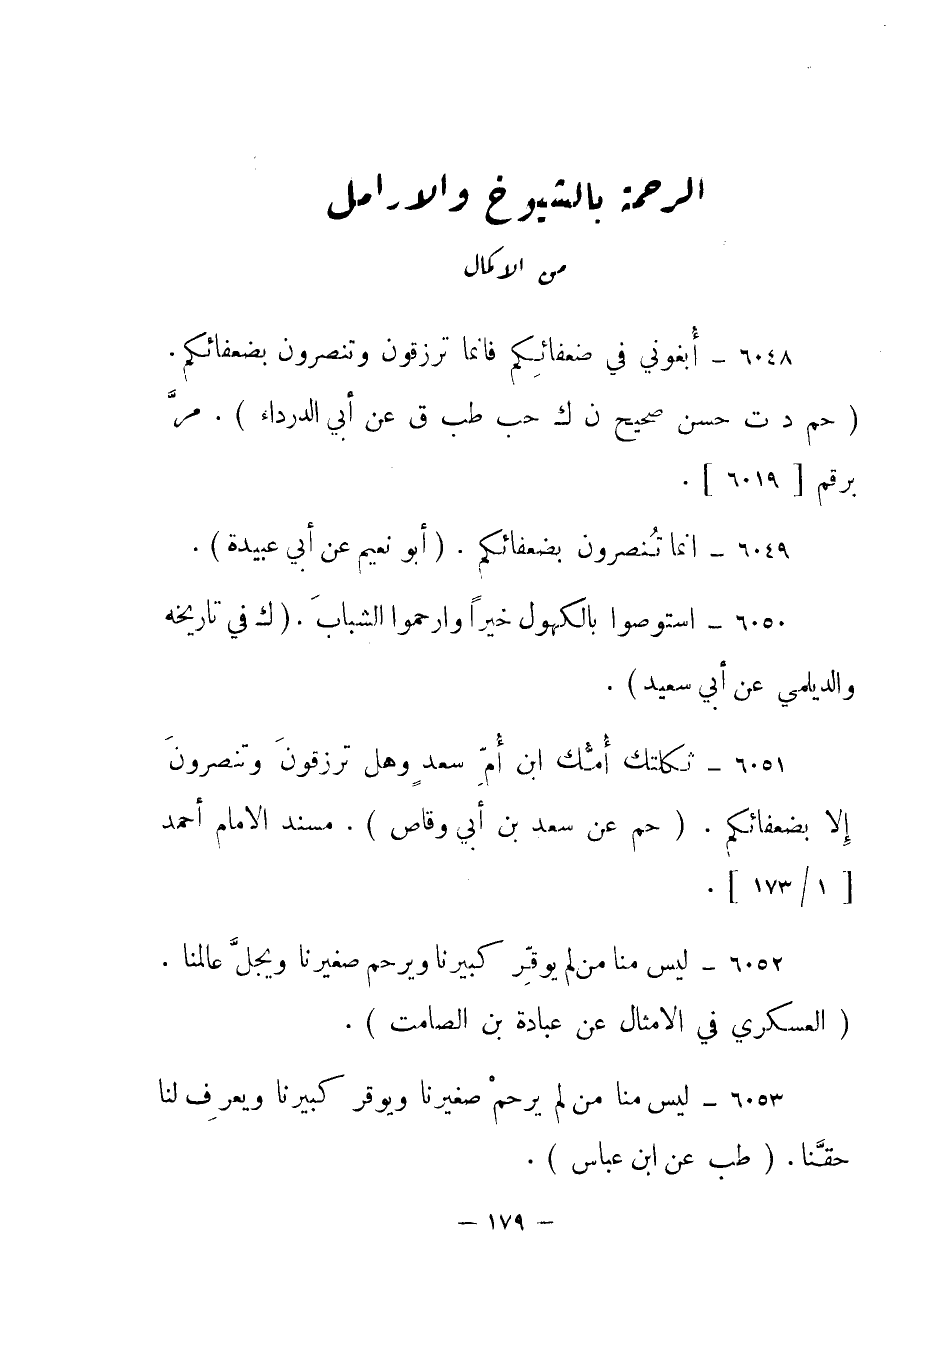 الرحمة بالشيوخ والارامل
من الاكمال
٦٠٤٨ ـ أبغوني في ضعفائكِم فانما ترزقون وتنصرون بضعفائكم .
( حم د ت حسن صحيح ن ك حب طب ق عن أبي الدرداء ) . مرَّ
برقم [ ٦٠١٩ ] .
٦٠٤٩ ـ انما تُنصرون بضعفائكم . ( أبو نعيم عن أبي عبيدة ) .
٦٠٥٠ ـ استوصوا بالكهول خيراً وارحموا الشبابَ . ( ك في تاريخه
والديلمي عن أبي سعيد ) .
٦٠٥١ ـ ثكلتك أُمُّك ابن أُمِّ سعدٍ وهل ترزقونَ وتنصرونَ
إِلا بضعفائكم . ( حم عن سعد بن أبي وقاص ) . مسند الامام أحمد
[ ١ / ١٧٣ ] .
٦٠٥٢ ـ ليس منا من لم يوقِّر كبيرنا ويرحم صغيرنا ويجلَّ عالمنا .
( العسكري في الامثال عن عبادة بن الصامت ) .
٦٠٥٣ ـ ليس منا من لم يرحمْ صغيرنا ويوقر كبيرنا ويعرِف لنا
حقَّنا . ( طب عن ابن عباس ) .
— ١٧٩ —